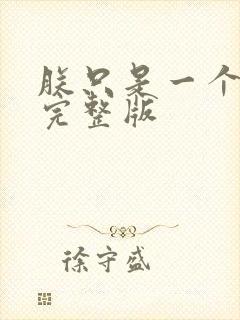 朕只是一个
完整版
徐守盛